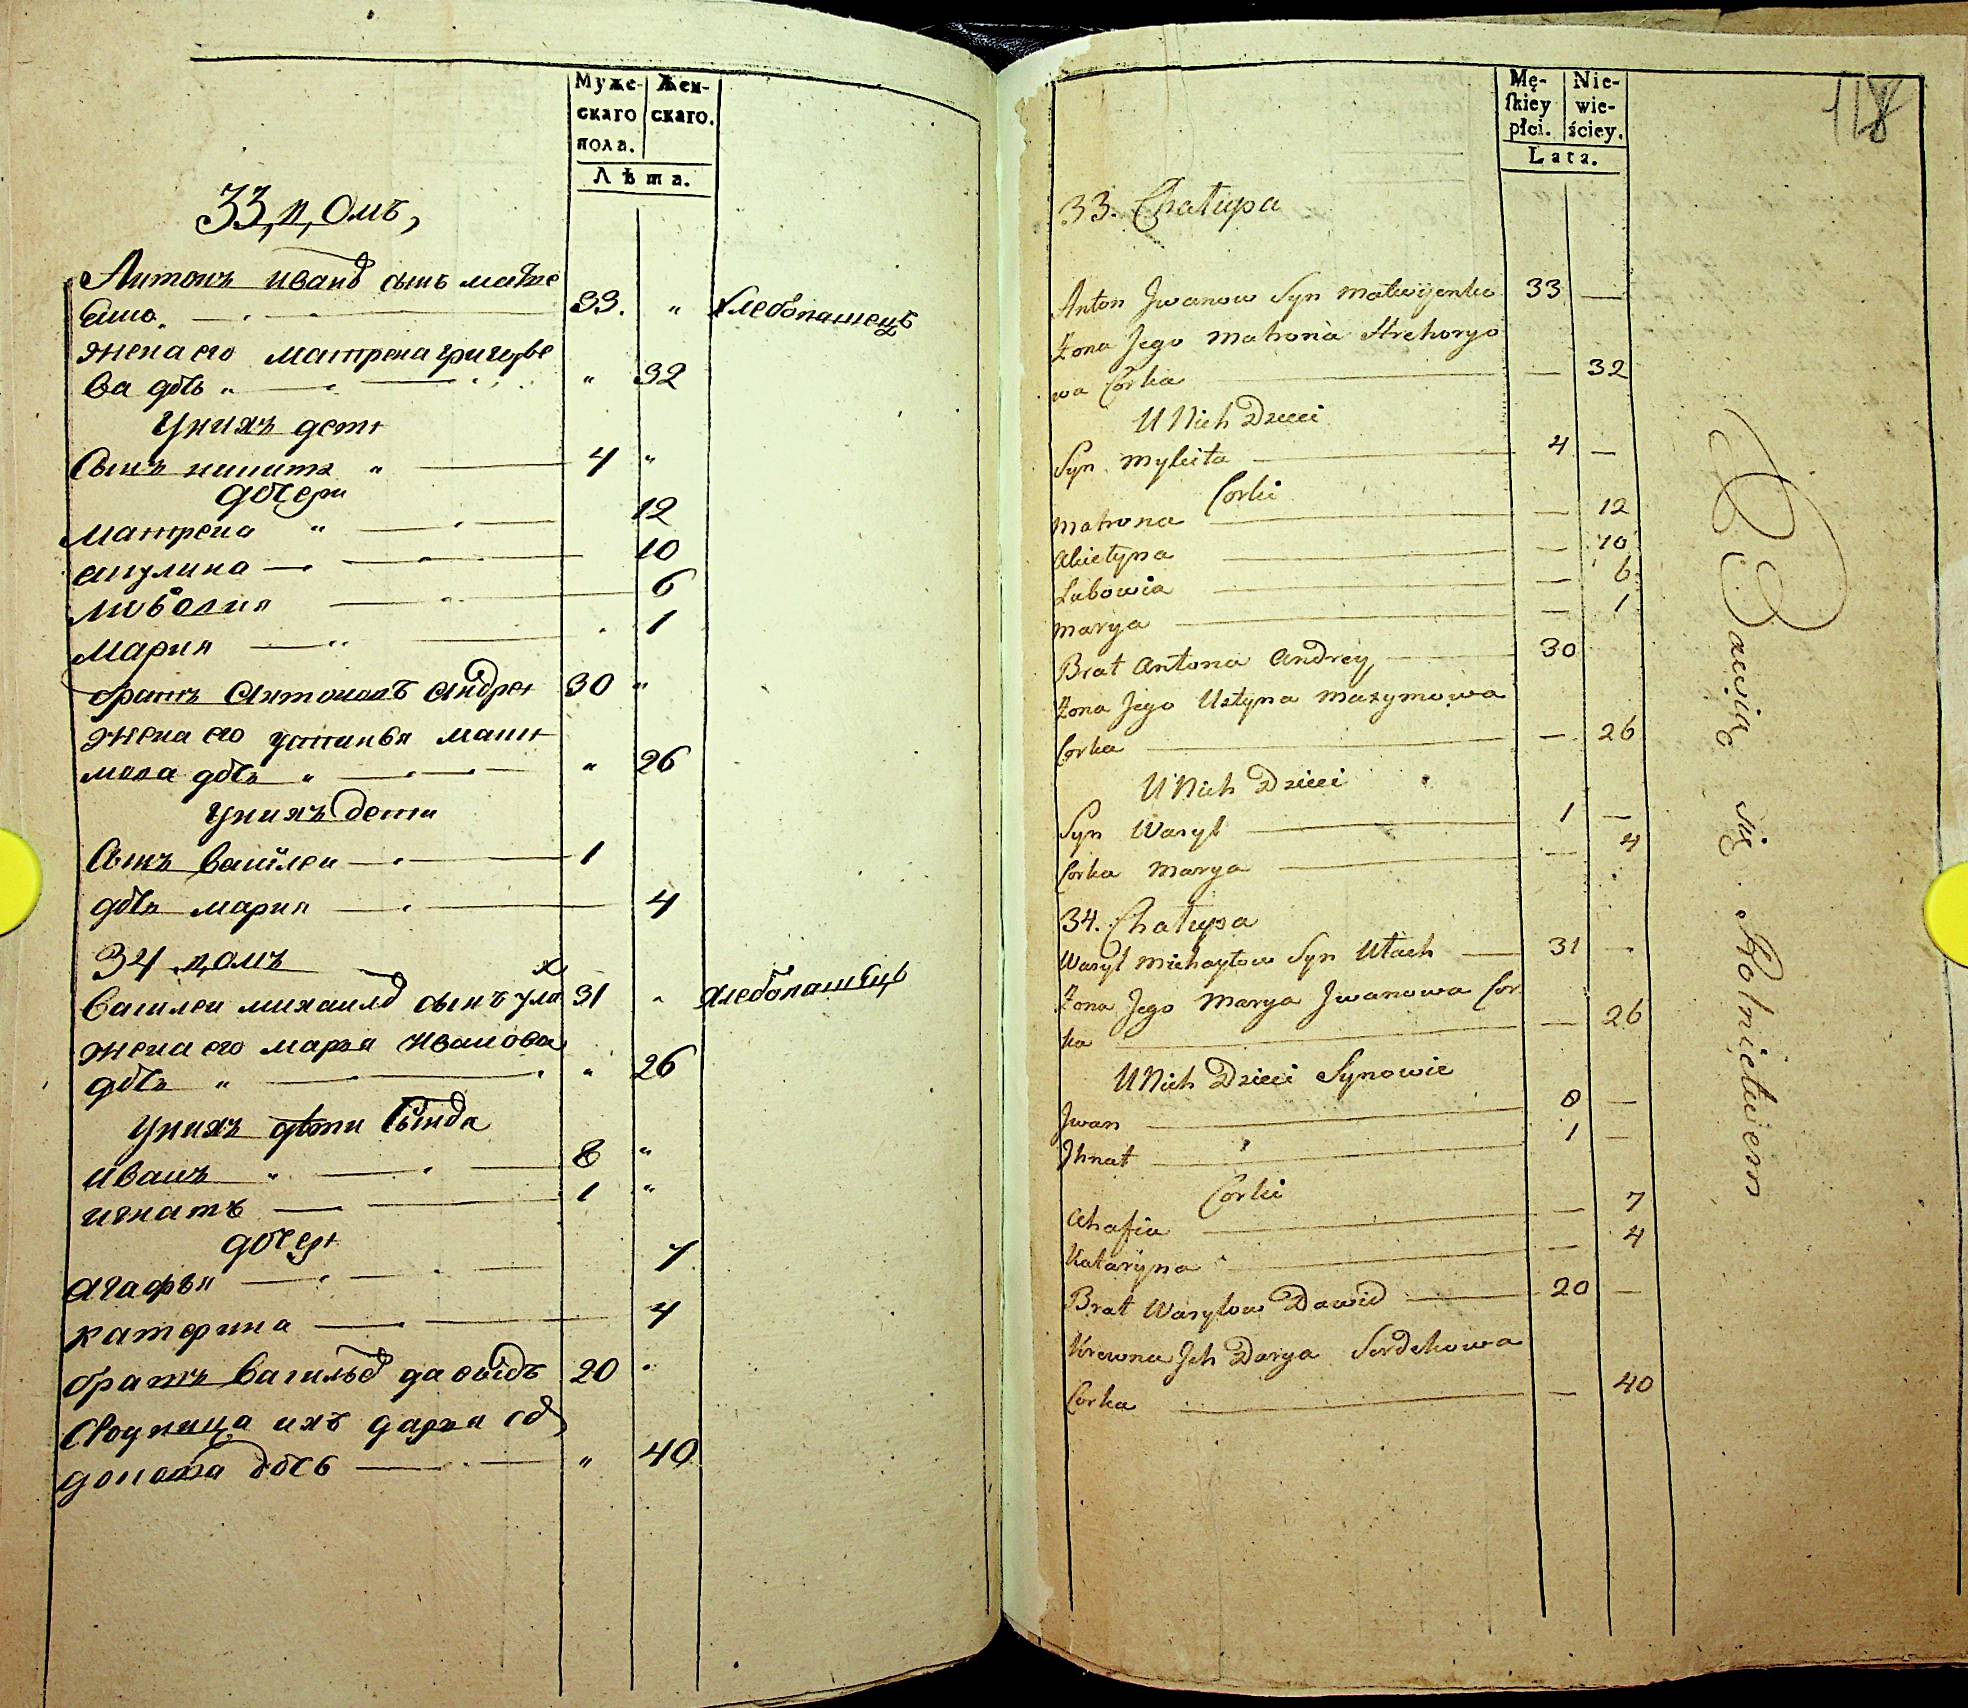 Муже- Жен-
скаго скаго.
пола.
Лѣта.
33, домъ,
Антонъ иванов сынъ матве
енко 33. " хлебопашецъ
жена его матрена григорье
ва дочь " " 32
У нихъ дети
Сынъ никита " 4 "
дочери
матрена " 12
акулина 10
любовия 6
мария 1
братъ Антоновъ андреи 30 "
жена его устинья макси
мова дочь " " 26
У нихъ дети
Сынъ василеи 1
дочь мария 4
34 домъ
василеи михаилов сынъ улах 31 " хлебопашецъ
жена его марья иванова
дочь " " 26
У нихъ дѣти сыновя
иванъ " 8 "
игнатъ 1 "
дочери
агафья 7
катерина 4
братъ васильев давыдъ 20 "
Сродница ихъ дарья
дочь " 40
118
Mę- Nie-
ſkiey wie-
płci. ściey.
Lata.
33. Chałupa
Anton Jwanow Syn Matwijenko 33 —
Żona Jego Matrona Hrehoryo
wa Corka — 32
U Nich Dzieci
Syn Mykita 4 —
Corki
Matrona — 12
Akietyna — 10
Lubowia — 6
Marya — 1
Brat Antona Andrey 30
Żona Jego Ustyna Maxymowa
Corka — 26
U Nich Dzieci
Syn Wasyl 1 —
Corka Marya — 4
34. Chałupa
Wasyl Michayłow Syn Ułach 31 —
Żona Jego Marya Jwanowa Cor
ka — 26
U Nich Dzieci Synowie
Jwan 8 —
Jhnat 1 —
Corki
Ahafia — 7
Kataryna — 4
Brat Wasylow Dawid 20 —
Krewna Jch Darya Serdekowa
Corka — 40
Bawią się Rolnictwem